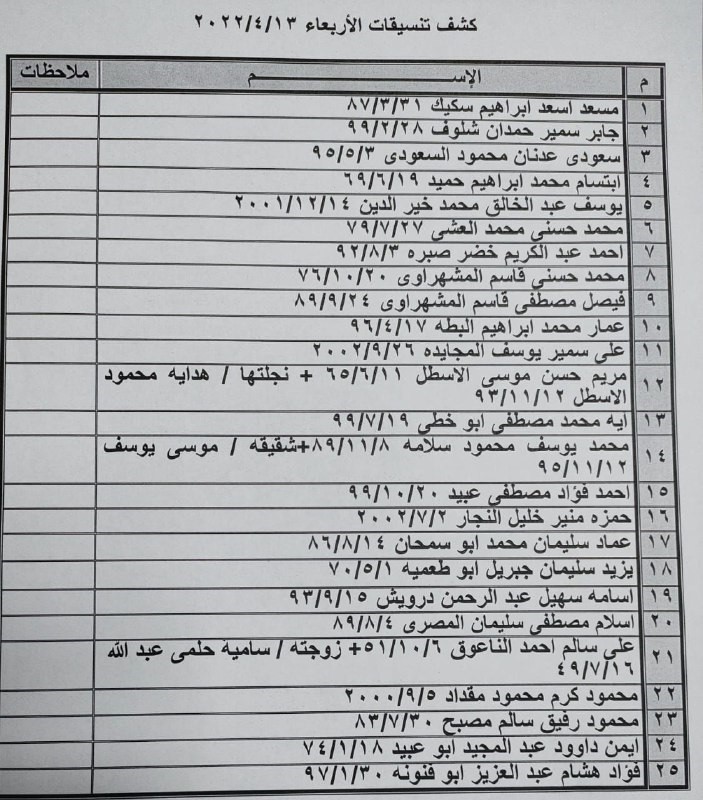 كشف تنسيقات الأربعاء ٢٠٢٢/٤/١٣
م الإســـــــم ملاحظات
١ مسعد اسعد ابراهيم سكيك ٨٧/٣/٣١
٢ جابر سمير حمدان شلوف ٩٩/٢/٢٨
٣ سعودى عدنان محمود السعودى ٩٥/٥/٣
٤ ابتسام محمد ابراهيم حميد ٦٩/٦/١٩
٥ يوسف عبد الخالق محمد خير الدين ٢٠٠١/١٢/١٤
٦ محمد حسنى محمد العشى ٧٩/٧/٢٧
٧ احمد عبد الكريم خضر صبره ٩٢/٨/٣
٨ محمد حسنى قاسم المشهراوى ٧٦/١٠/٢٠
٩ فيصل مصطفى قاسم المشهراوى ٨٩/٩/٢٤
١٠ عمار محمد ابراهيم البطه ٩٦/٤/١٧
١١ على سمير يوسف المجايده ٢٠٠٢/٩/٢٦
١٢ مريم حسن موسى الاسطل ٦٥/٦/١١ + نجلتها / هدايه محمود
الاسطل ٩٣/١١/١٢
١٣ ايه محمد مصطفى ابو خطى ٩٩/٧/١٩
١٤ محمد يوسف محمود سلامه ٨٩/١١/٨+شقيقه / موسى يوسف
٩٥/١١/١٢
١٥ احمد فؤاد مصطفى عبيد ٩٩/١٠/٢٠
١٦ حمزه منير خليل النجار ٢٠٠٢/٧/٢
١٧ عماد سليمان محمد ابو سمحان ٨٦/٨/١٤
١٨ يزيد سليمان جبريل ابو طعميه ٧٠/٥/١
١٩ اسامه سهيل عبد الرحمن درويش ٩٣/٩/١٥
٢٠ اسلام مصطفى سليمان المصرى ٨٩/٨/٤
٢١ على سالم احمد الناعوق ٥١/١٠/٦+ زوجته / سامية حلمى عبد الله
٤٩/٧/١٦
٢٢ محمود كرم محمود مقداد ٢٠٠٠/٩/٥
٢٣ محمود رفيق سالم مصبح ٨٣/٧/٣٠
٢٤ ايمن داوود عبد المجيد ابو عبيد ٧٤/١/١٨
٢٥ فؤاد هشام عبد العزيز ابو فنونه ٩٧/١/٣٠